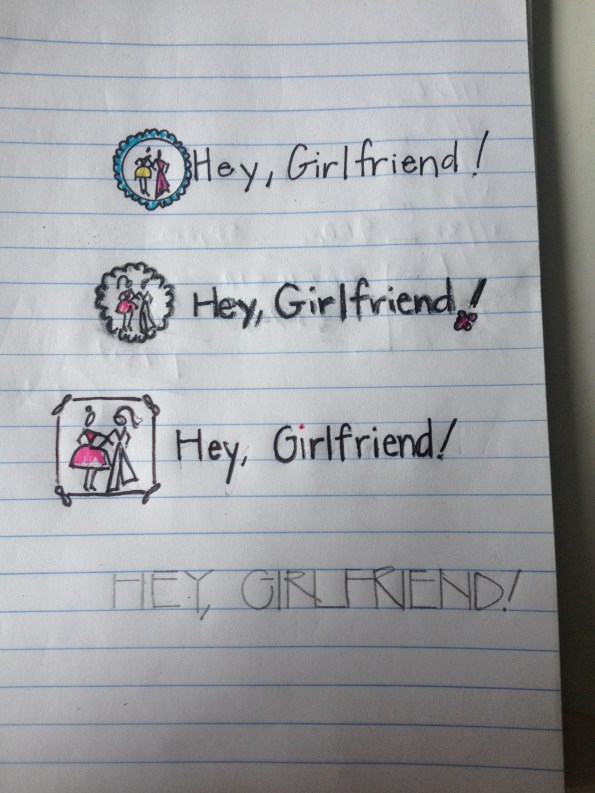 Hey, Girlfriend!
Hey, Girlfriend!
Hey, Girlfriend!
HEY, GIRLFRIEND!